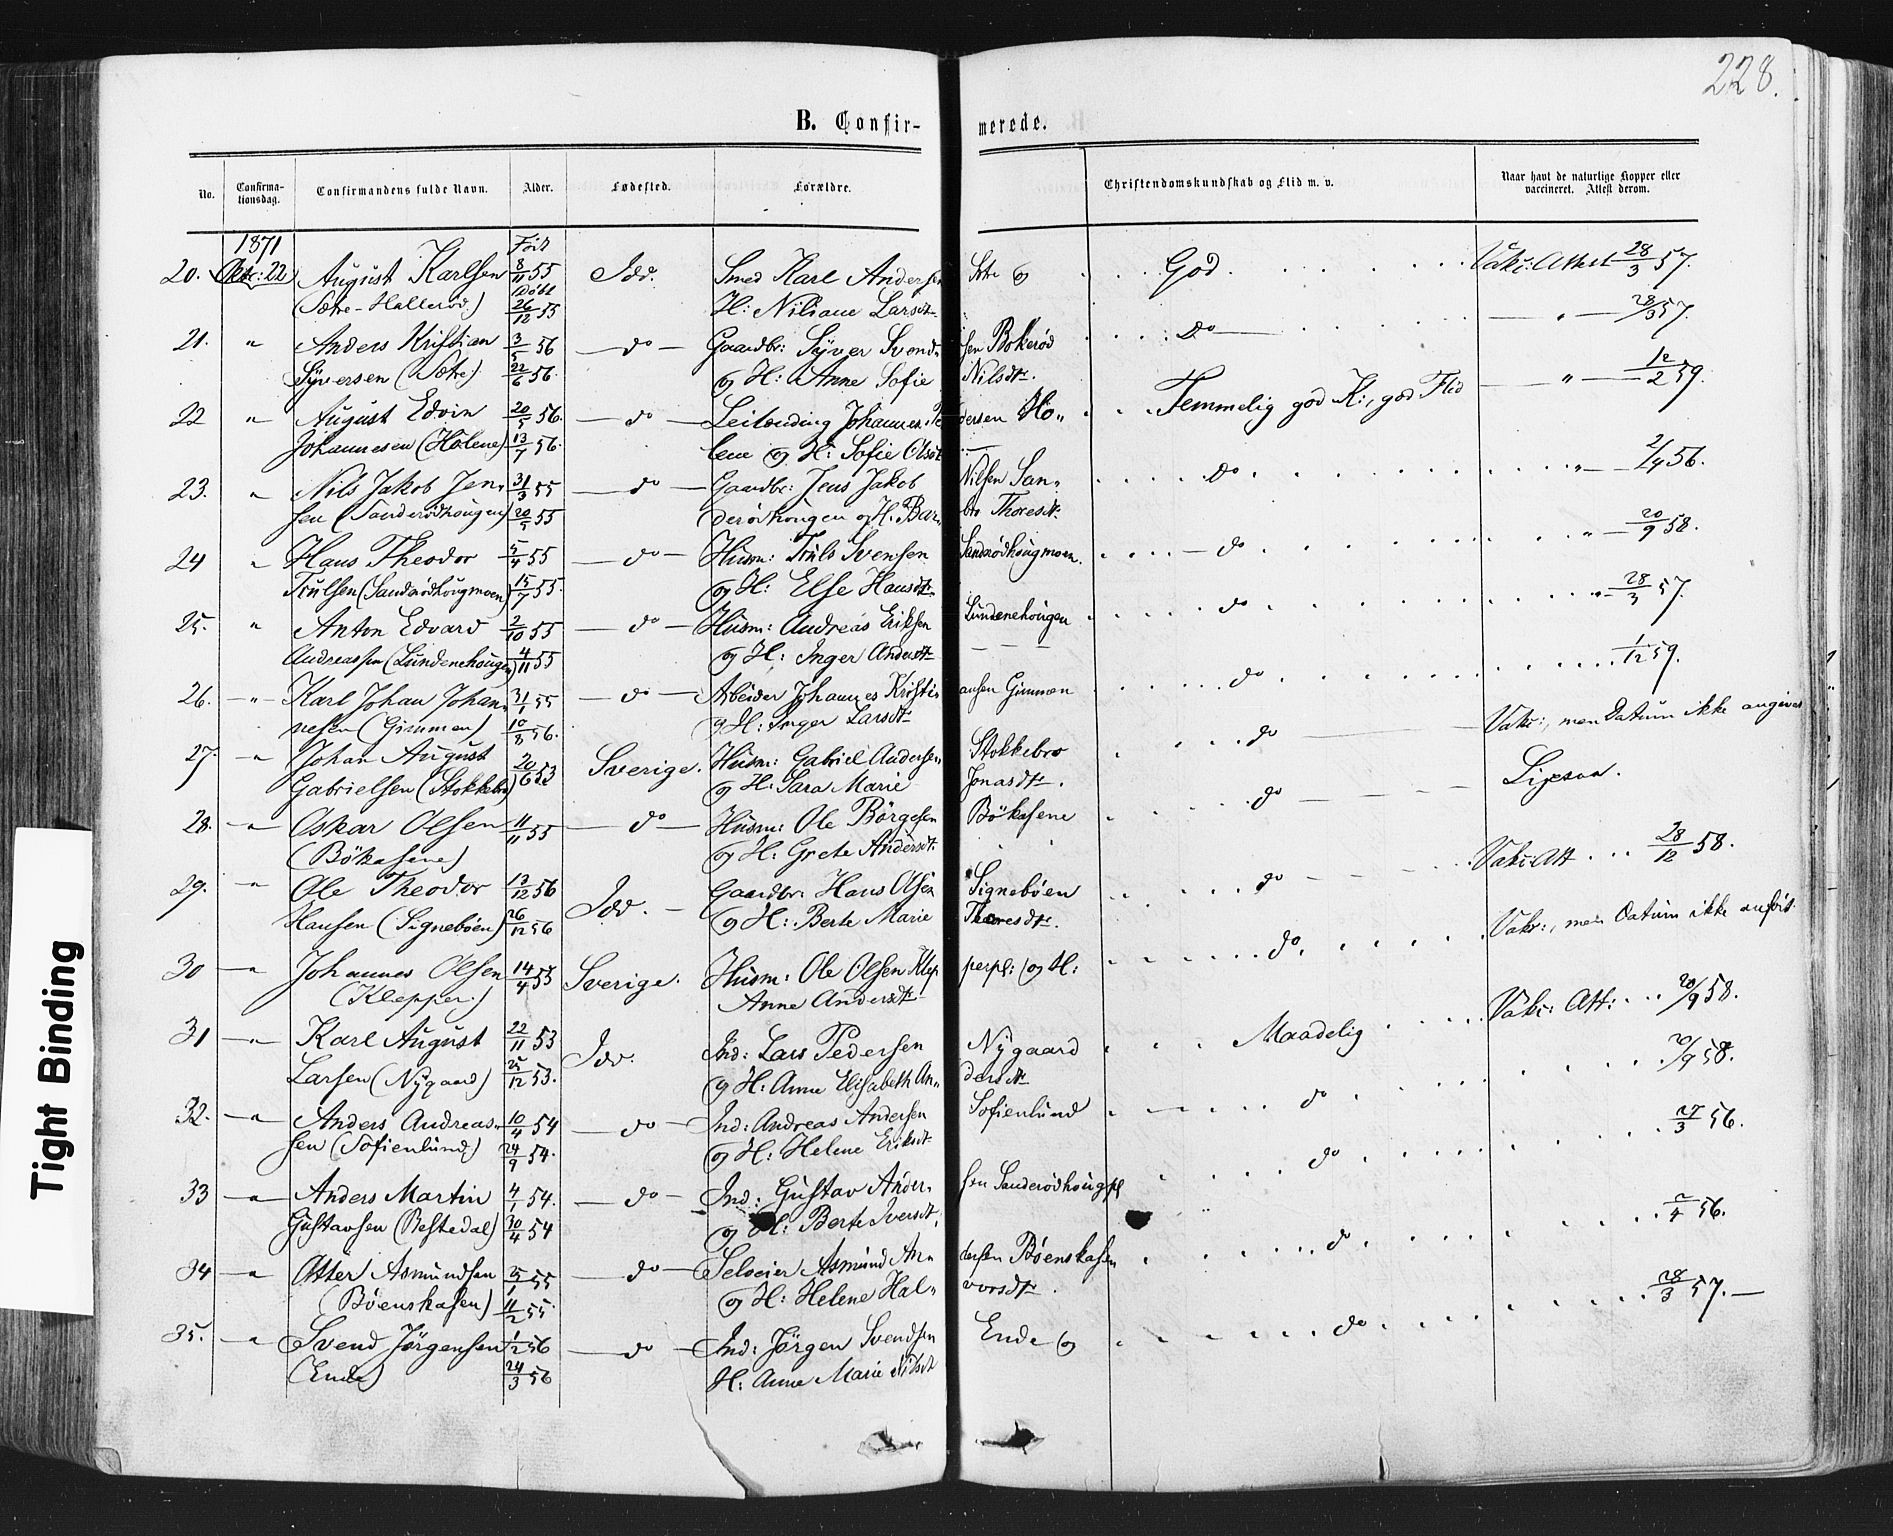 228.
B. Confir- merede.
No. Confirma-tionsdag. Confirmandens fulde Navn. Alder. Fødested. Forældre. Christendomskundskab og Flid m. v. Naar havt de naturlige Kopper eller vaccineret. Attest derom.
1871 Født
20. Oktr: 22 August Karlsen 8/11 55 Idd. Smed Karl Andersen Sætre og God. Vakc: Attest 28/3 57.
(Sætre-Hallerød) Døbt 26/12 55 H: Niliane Larsdtr
21. " Anders Kristian 3/5 56 do Gaardbr: Syver Svend- sen Bokerød Do " 28/3 57.
Syversen (Sætre) 22/6 56. og H: Anne Sofie Nilsdtr.
22 " August Edvin 20/5 56. do Leilending Johannes Pe dersen Ho- Temmelig god K:, god Flid " 12/2 59.
Johannesen (Holene) 13/7 56. lene og H: Sofie Olsdt
23. " Nils Jakob Jen- 31/3 55 do Gaardbr: Jens Jakob Nilsen San- Do " 2/4 56.
sen (Sanderødhougen) 20/5 55 derødhougen og H: Bar- bro Thoresdtr.
24 " Hans Theodor 5/4 55 do Husm: Truls Svensen Sanderødhougmoen. do " 20/9 58.
Trulsen (Sanderødhougmoen) 15/7 55. og H: Else Hansdtr.
25. " Anton Edvard 2/10 55 do Husm: Andreas Eriksen Lundenehougen do " 28/3 57.
Andreassen (Lundenehougen) 4/11 55 og H: Inger Andersdtr
26. " Karl Johan Johan- 31/1 55 do Arbeider Johannes Kristi- ansen Gimmen do 1/12 59.
nesen (Gimmen) 10/8 56. og H: Inger Larsdtr
27. " Johan August 20/6 53 Sverige. Husm: Gabriel Andersen Stokkebro do Vakc:, men Datum ikke angivet
Gabrielsen (Stokkebro) og H: Sara Marie Jonasdtr.
28. " Oskar Olsen 11/11 55 do Husm: Ole Børgesen Bökasene do Ligesaa.
(Bökasene) og H: Grete Andersdt.
29. " Ole Theodor 13/12 56 Idd. Gaardbr: Hans Olsen Signebøen do Vakc: Att 28/12 58.
Hansen (Signebøen) 26/12 56 og H: Berte Marie Thoresdtr.
30 " Johannes Olsen 14/4 55 Sverige. Husm: Ole Olsen Klep perpl: og H: do. Vakc:, men Datum ikke anført
(Klepper.) Anne Andersdtr
31 " Karl August 22/11 53 Idd. Ind: Lars Pedersen Nygaard Maadelig Vakc: Att: 20/9 58.
Larsen (Nygaard) 25/12 53. og H: Anne Elisabeth An- dersdtr
32. " Anders Andreas- 10/4 54 do Ind: Andreas Andersen Sofienlund do 20/9 58.
sen (Sofienlund) 24/9 54. og H: Helene Eriksdt
33 " Anders Martin 4/1 54. do Ind: Gustav Ander- sen Sanderødhougpl do 27/3 56.
Gustavsen (Restedal) 30/4 54 og H: Berte Iversdt.
34 " Otter Asmundsen 25/1 55 do Seloeier Asmund An- dersen Bøenskasen do 2/4 56.
(Bøenskasen) 11/2 55. og H: Helene Hal- vorsdtr.
35. " Svend Jørgensen 1/2 56 do Ind: Jørgen Svendsen Ende og do 28/3 57.
(Ende) 24/3 56 H: Anne Marie Nilsdt
Tight Binding